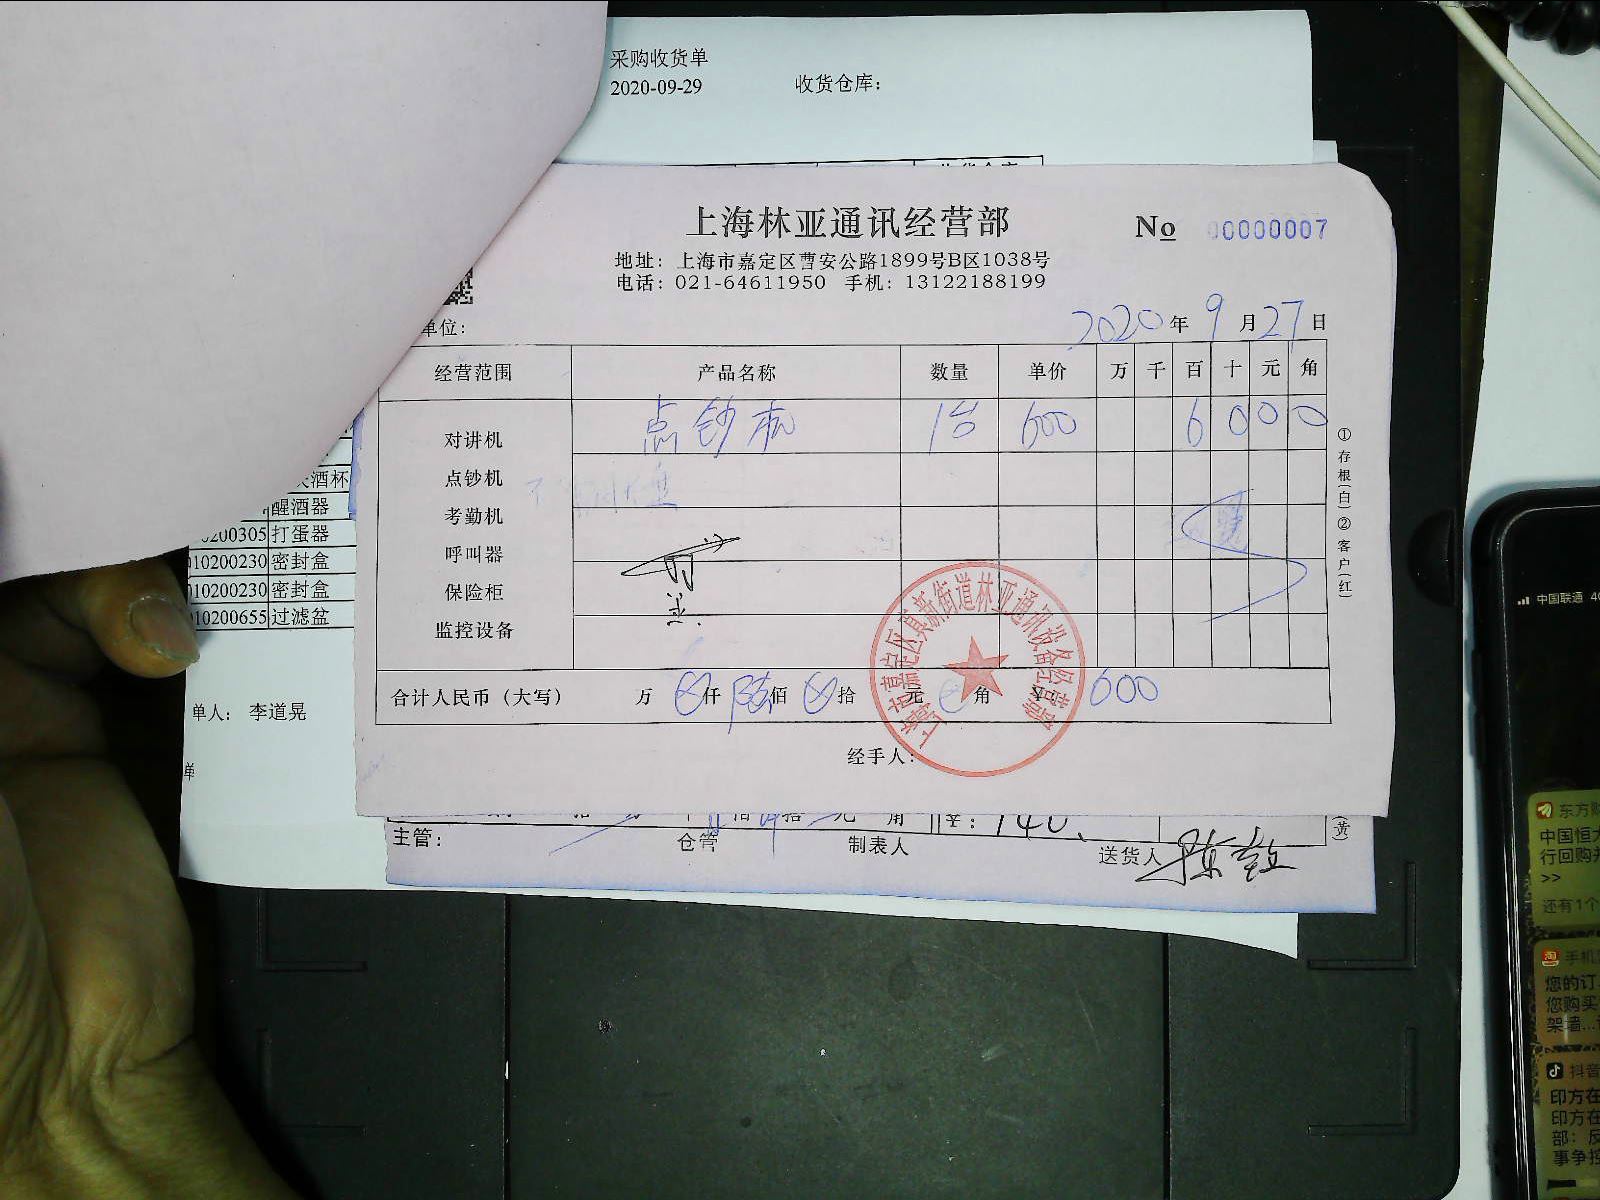 采购收货单
2020-09-29 收货仓库：
上海林亚通讯经营部 No 00000007
地址：上海市嘉定区曹安公路1899号B区1038号
电话：021-64611950 手机：13122188199
单位： 2020年9月27日
经营范围 产品名称 数量 单价 万 千 百 十 元 角
对讲机 点钞机 1台 600 6 0 0 0
点钞机
考勤机
呼叫器
保险柜
监控设备
合计人民币（大写） 万 仟 陆佰 拾 元 角 600
经手人：
①存根(白)②客户(红)
酒杯
醒酒器
00200305 打蛋器
010200230 密封盒
010200230 密封盒
010200655 过滤盆
单人： 李道晃
单
佰 拾 元 角 140.
主管： 仓管 制表人 送货人
(黄)
中国联通
东方财
中国恒大
行回购
>>
还有1个
手机
您的订
您购买
架墙...
抖音
印方在
印方在
部：反
事争控